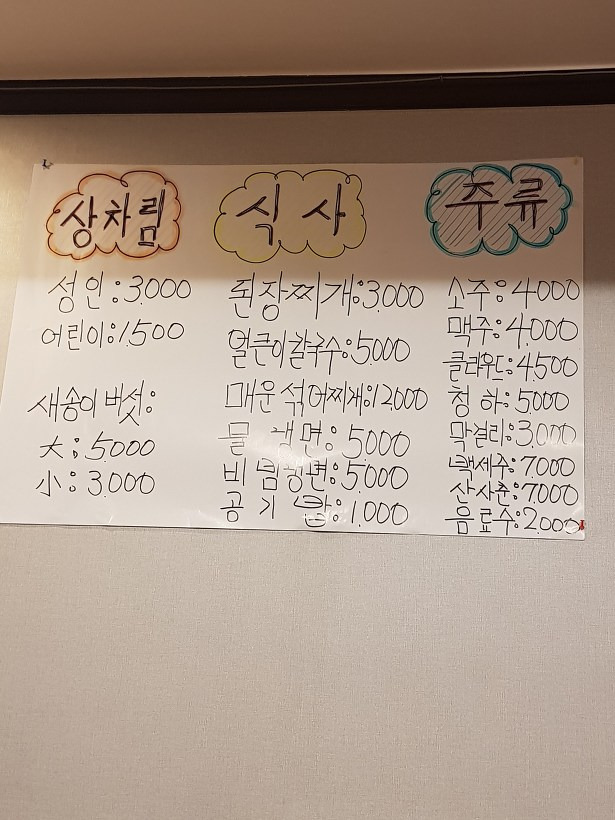 상차림
성인:3.000
어린이:1.500
새송이버섯:
大:5.000
小:3.000
식사
된장찌개:3.000
얼큰이칼국수:5.000
매운섞어찌개:12.000
물냉면:5.000
비빔냉면:5.000
공기밥:1.000
주류
소주:4.000
맥주:4.000
클라우드:4.500
청하:5.000
막걸리:3.000
백세주:7.000
산사춘:7.000
음료수:2.000